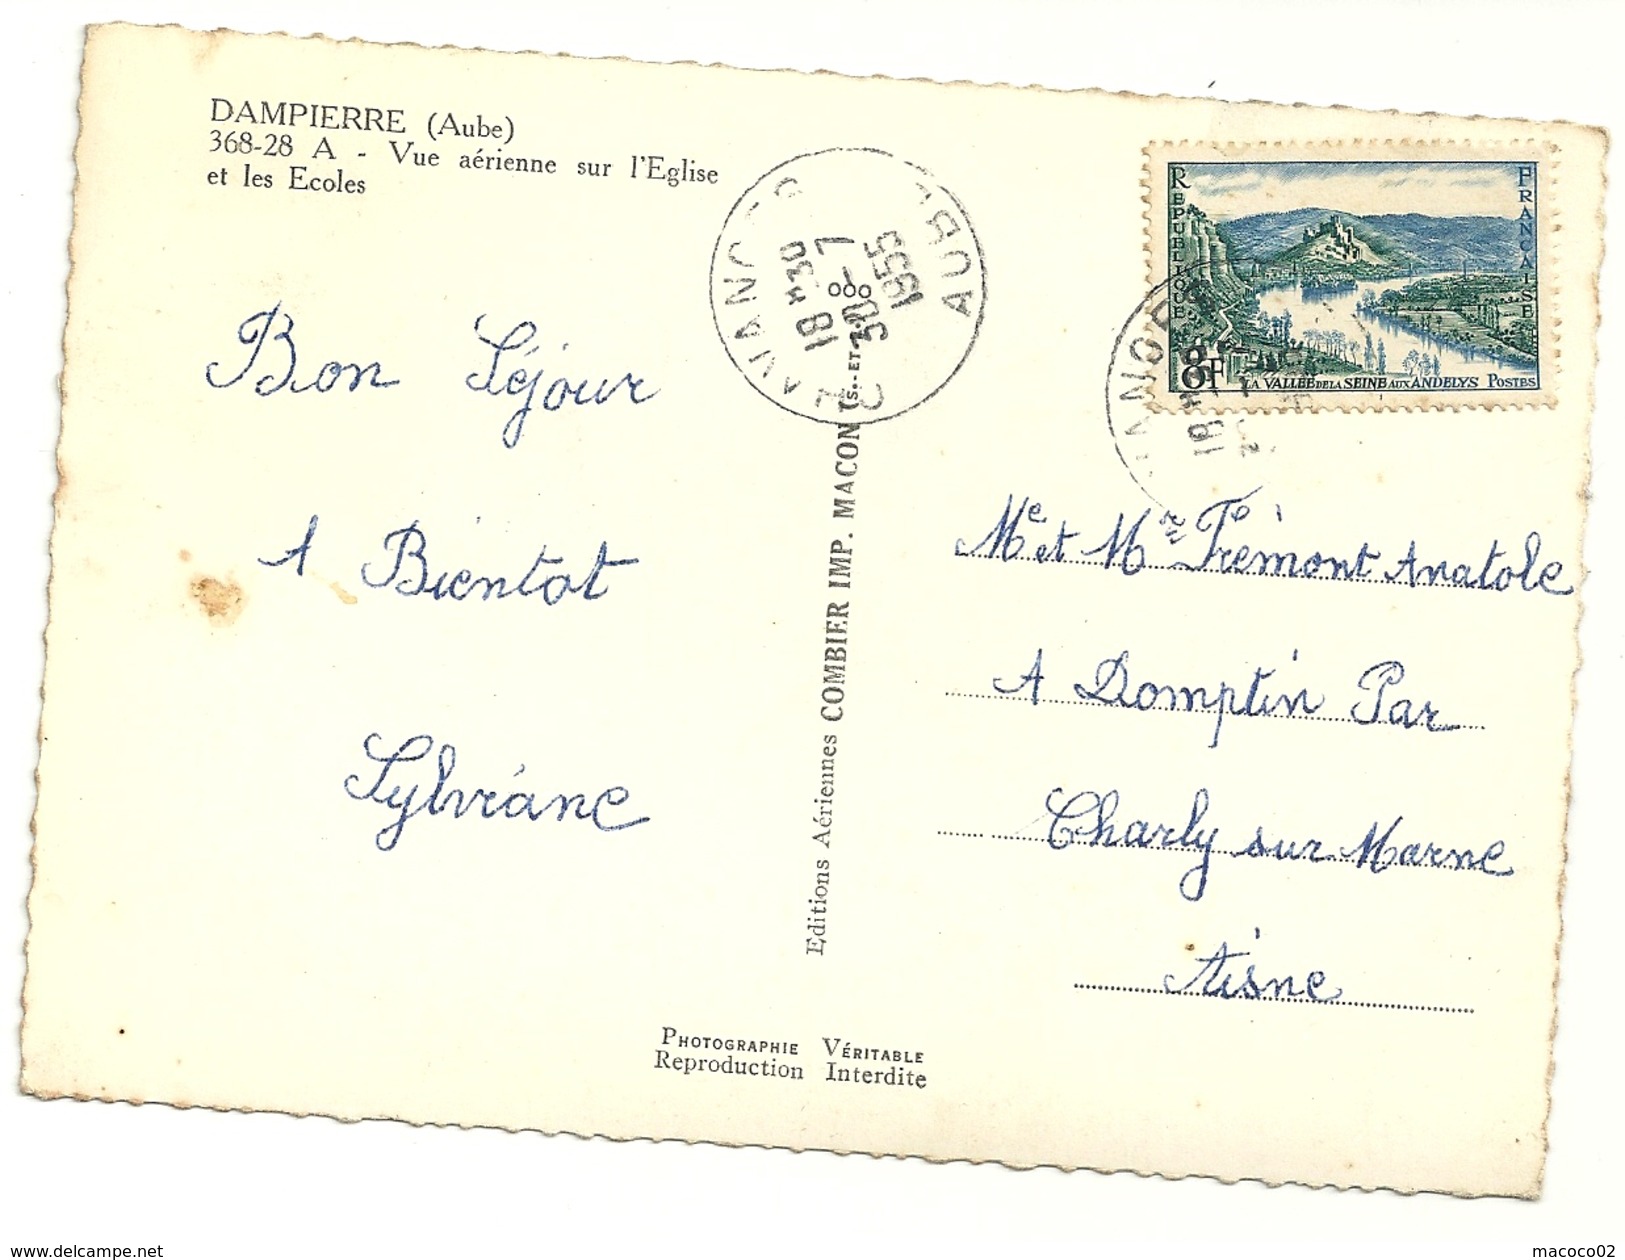 DAMPIERRE (Aube)
368-28 A - Vue aérienne sur l'Eglise
et les Ecoles
Bon Séjour
A Bientot
Sylviane
CHAVANGES
AUBE
18 H 30
30-7
1955
Editions Aériennes COMBIER IMP. MACON (S.-ET-
REPUBLIQUE
FRANCAISE
8F
LA VALLEE DE LA SEINE AUX ANDELYS POSTES
18 H
Me et Mr Frèmont Anatole
A Domptin Par
Charly sur Marne
Aisne
PHOTOGRAPHIE VÉRITABLE
Reproduction Interdite
www.delcampe.net
macoco02